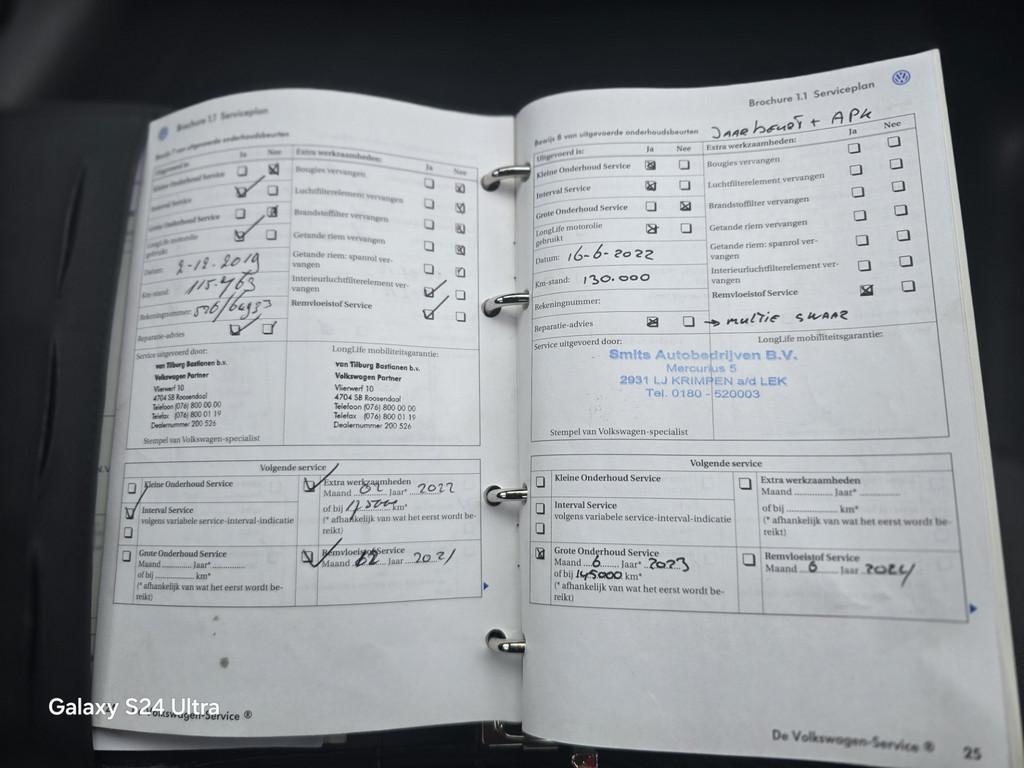 Brochure 1.1 Serviceplan
Bewijs 7 van uitgevoerde onderhoudsbeurten
Uitgevoerd is: Ja Nee
Kleine Onderhoud Service
Interval Service
Grote Onderhoud Service
LongLife motorolie
gebruikt
Datum: 2-12-2019
Km-stand: 115.463
Rekeningnummer:
Reparatie-advies
Extra werkzaamheden: Ja Nee
Bougies vervangen
Luchtfilterelement vervangen
Brandstoffilter vervangen
Getande riem vervangen
Getande riem: spanrol ver-
vangen
Interieurluchtfilterelement ver-
vangen
Remvloeistof Service
Service uitgevoerd door:
van Tilburg Bastianen b.v.
Volkswagen Partner
Vlierwerf 10
4704 SB Roosendaal
Telefoon (076) 800 00 00
Telefax (076) 800 01 19
Dealernummer 200 526
Stempel van Volkswagen-specialist
LongLife mobiliteitsgarantie:
van Tilburg Bastianen b.v.
Volkswagen Partner
Vlierwerf 10
4704 SB Roosendaal
Telefoon (076) 800 00 00
Telefax (076) 800 01 19
Dealernummer 200 526
Volgende service
Kleine Onderhoud Service
Interval Service
volgens variabele service-interval-indicatie
Grote Onderhoud Service
Maand ............ Jaar* ..................
of bij .................. km*
(* afhankelijk van wat het eerst wordt be-
reikt)
Extra werkzaamheden
Maand 02 Jaar* 2022
of bij km*
(* afhankelijk van wat het eerst wordt be-
reikt)
Remvloeistof Service
Maand 02 Jaar 2021
De Volkswagen-Service ®
Brochure 1.1 Serviceplan
Bewijs 8 van uitgevoerde onderhoudsbeurten
JAARbeurt + APK
Uitgevoerd is: Ja Nee
Kleine Onderhoud Service
Interval Service
Grote Onderhoud Service
LongLife motorolie
gebruikt
Datum: 16-6-2022
Km-stand: 130.000
Rekeningnummer:
Reparatie-advies → multie SNAAR
Extra werkzaamheden: Ja Nee
Bougies vervangen
Luchtfilterelement vervangen
Brandstoffilter vervangen
Getande riem vervangen
Getande riem: spanrol ver-
vangen
Interieurluchtfilterelement ver-
vangen
Remvloeistof Service
Service uitgevoerd door:
LongLife mobiliteitsgarantie:
Smits Autobedrijven B.V.
Mercurius 5
2931 LJ KRIMPEN a/d LEK
Tel. 0180 - 520003
Stempel van Volkswagen-specialist
Volgende service
Kleine Onderhoud Service
Interval Service
volgens variabele service-interval-indicatie
Grote Onderhoud Service
Maand 6 Jaar* 2023
of bij 145000 km*
(* afhankelijk van wat het eerst wordt be-
reikt)
Extra werkzaamheden
Maand ............ Jaar* ..................
of bij .................. km*
(* afhankelijk van wat het eerst wordt be-
reikt)
Remvloeistof Service
Maand 6 Jaar 2024
De Volkswagen-Service ®
25
Galaxy S24 Ultra